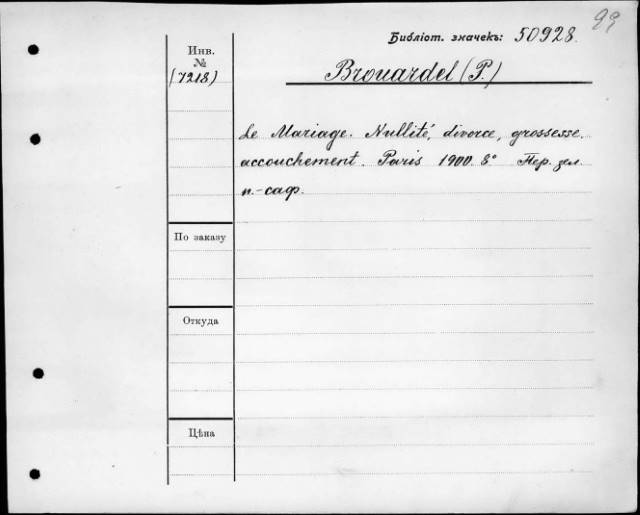 99
Библіот. значекъ: 50928.
Инв.
№
(7218)
Brouardel (P.)
Le Mariage. Nullité, divorce, grossesse.
accouchement. Paris 1900. 8° Пер. зел
п.-саф.
По заказу
Откуда
Цѣна